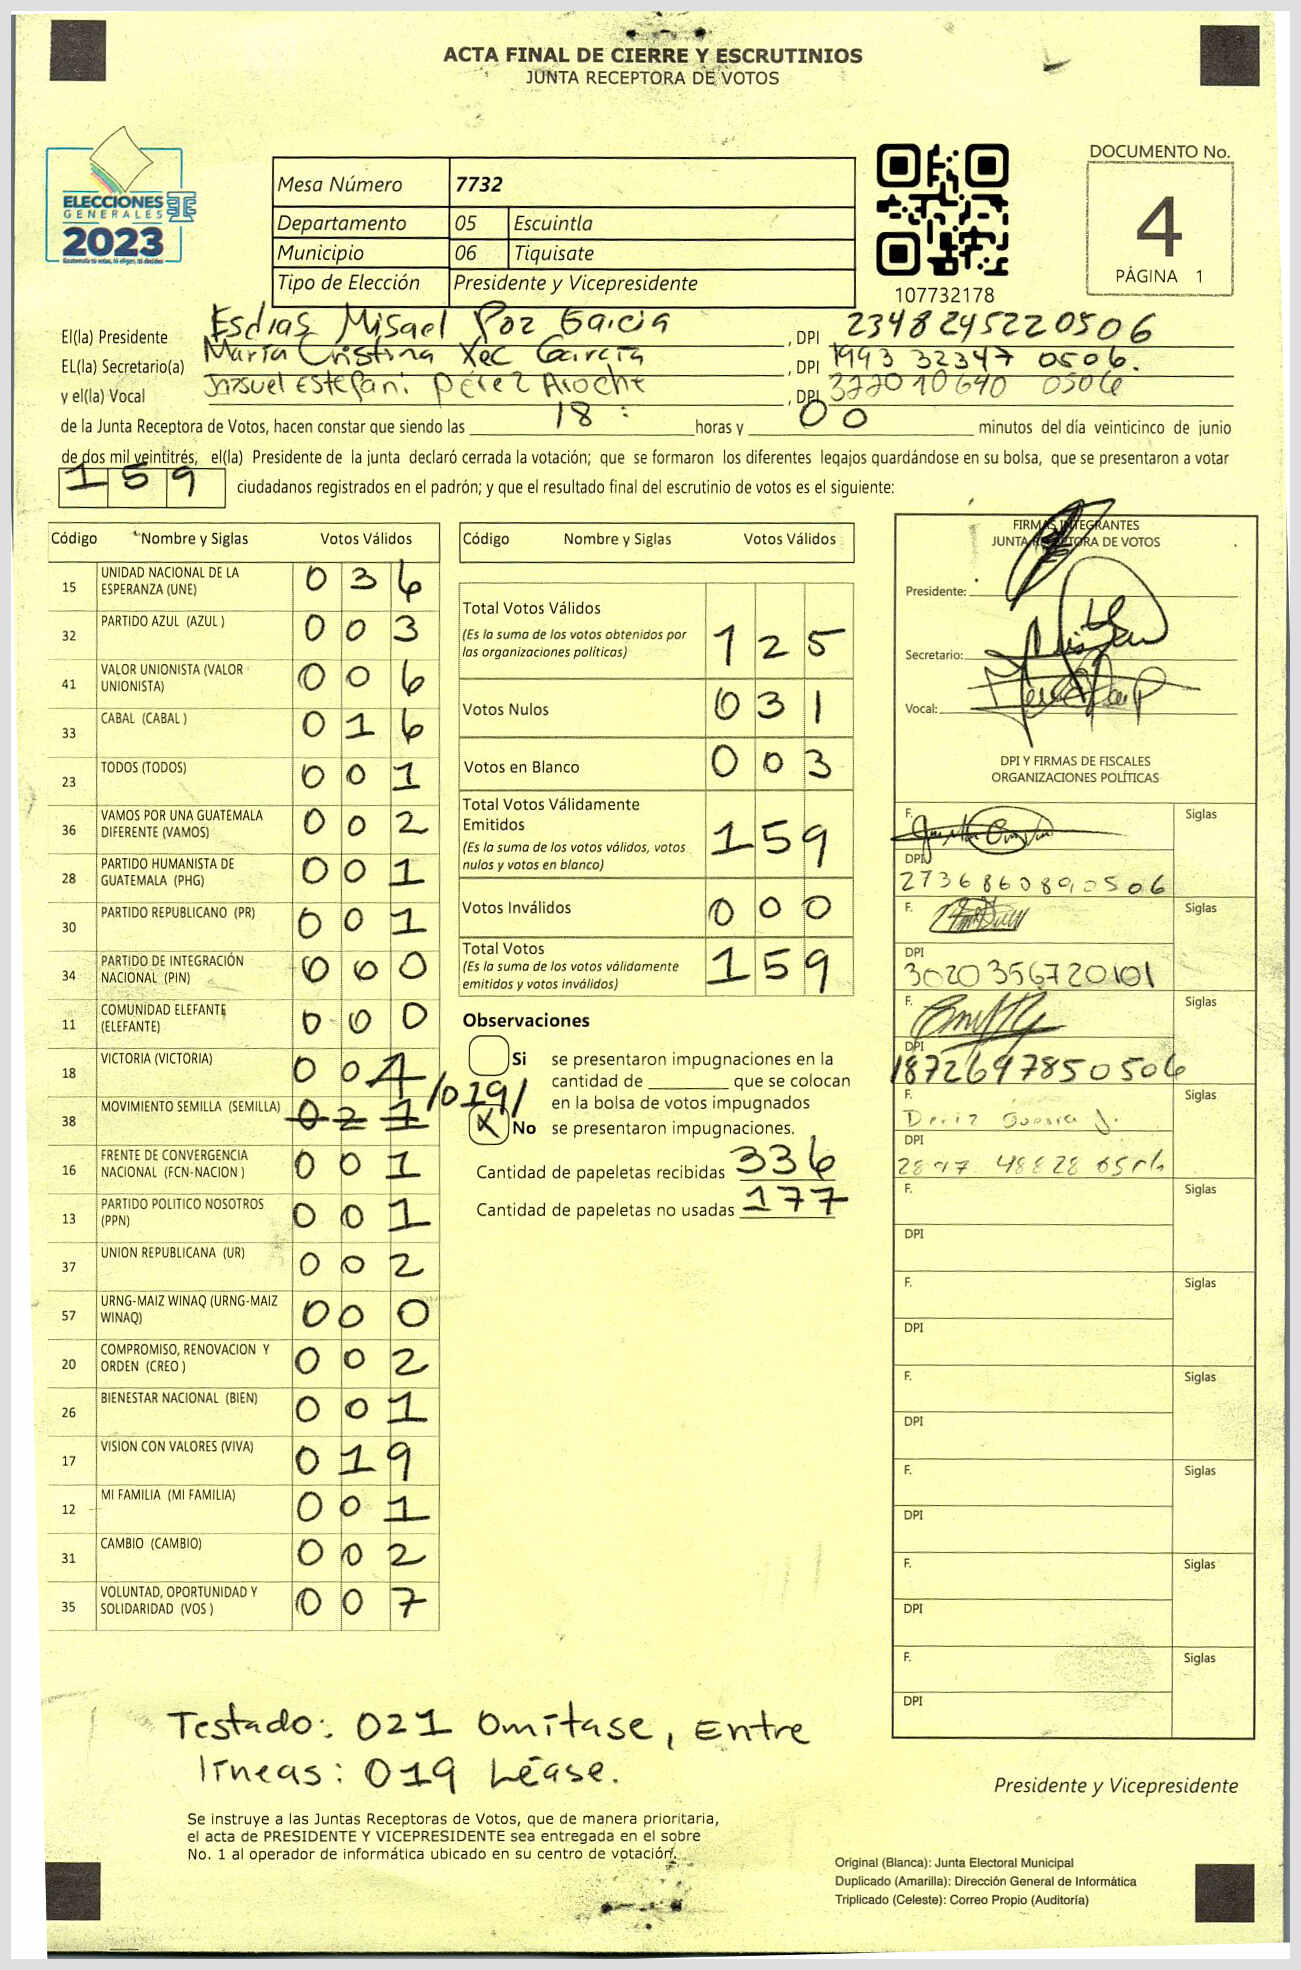 ACTA FINAL DE CIERRE Y ESCRUTINIOS
JUNTA RECEPTORA DE VOTOS
ELECCIONES
GENERALES
2023
Mesa Número 7732
Departamento 05 Escuintla
Municipio 06 Tiquisate
Tipo de Elección Presidente y Vicepresidente
107732178
DOCUMENTO No.
4
PÁGINA 1
El(la) Presidente Esdras Misael Poz Garcia, DPI 2348245220506
EL(la) Secretario(a) María Cristina Xec García, DPI 1993 32347 0506.
y el(la) Vocal Estefani Pérez Aroche, DPI 377010640 0506
de la Junta Receptora de Votos, hacen constar que siendo las 18: horas y 00 minutos del día veinticinco de junio
de dos mil veintitrés, el(la) Presidente de la junta declaró cerrada la votación; que se formaron los diferentes legajos quardándose en su bolsa, que se presentaron a votar
159 ciudadanos registrados en el padrón; y que el resultado final del escrutinio de votos es el siguiente:
Código Nombre y Siglas Votos Válidos
15 UNIDAD NACIONAL DE LA ESPERANZA (UNE) 036
32 PARTIDO AZUL (AZUL ) 003
41 VALOR UNIONISTA (VALOR UNIONISTA) 006
33 CABAL (CABAL ) 016
23 TODOS (TODOS) 001
36 VAMOS POR UNA GUATEMALA DIFERENTE (VAMOS) 002
28 PARTIDO HUMANISTA DE GUATEMALA (PHG) 001
30 PARTIDO REPUBLICANO (PR) 001
34 PARTIDO DE INTEGRACIÓN NACIONAL (PIN) 000
11 COMUNIDAD ELEFANTE (ELEFANTE) 000
18 VICTORIA (VICTORIA) 004
38 MOVIMIENTO SEMILLA (SEMILLA) 021 /019/
16 FRENTE DE CONVERGENCIA NACIONAL (FCN-NACION ) 001
13 PARTIDO POLITICO NOSOTROS (PPN) 001
37 UNION REPUBLICANA (UR) 002
57 URNG-MAIZ WINAQ (URNG-MAIZ WINAQ) 000
20 COMPROMISO, RENOVACION Y ORDEN (CREO ) 002
26 BIENESTAR NACIONAL (BIEN) 001
17 VISION CON VALORES (VIVA) 019
12 MI FAMILIA (MI FAMILIA) 001
31 CAMBIO (CAMBIO) 002
35 VOLUNTAD, OPORTUNIDAD Y SOLIDARIDAD (VOS ) 007
Código Nombre y Siglas Votos Válidos
Total Votos Válidos 125
(Es la suma de los votos obtenidos por
las organizaciones políticas)
Votos Nulos 031
Votos en Blanco 003
Total Votos Válidamente
Emitidos 159
(Es la suma de los votos válidos, votos
nulos y votos en blanco)
Votos Inválidos 000
Total Votos 159
(Es la suma de los votos válidamente
emitidos y votos inválidos)
Observaciones
Si se presentaron impugnaciones en la
cantidad de ________ que se colocan
en la bolsa de votos impugnados
X No se presentaron impugnaciones.
Cantidad de papeletas recibidas 336
Cantidad de papeletas no usadas 177
FIRMAS INTEGRANTES
JUNTA RECEPTORA DE VOTOS
Presidente:
Secretario:
Vocal:
DPI Y FIRMAS DE FISCALES
ORGANIZACIONES POLÍTICAS
F. Siglas
DPI
2736860890506
F. Siglas
DPI
3020356720101
F. Siglas
DPI
1872697850506
F. Siglas
DPI
2897 48828 0506
F. Siglas
DPI
F. Siglas
DPI
F. Siglas
DPI
F. Siglas
DPI
F. Siglas
DPI
F. Siglas
DPI
Testado: 021 Omítase, Entre
líneas: 019 Léase.
Presidente y Vicepresidente
Se instruye a las Juntas Receptoras de Votos, que de manera prioritaria,
el acta de PRESIDENTE Y VICEPRESIDENTE sea entregada en el sobre
No. 1 al operador de informática ubicado en su centro de votación.
Original (Blanca): Junta Electoral Municipal
Duplicado (Amarilla): Dirección General de Informática
Triplicado (Celeste): Correo Propio (Auditoría)